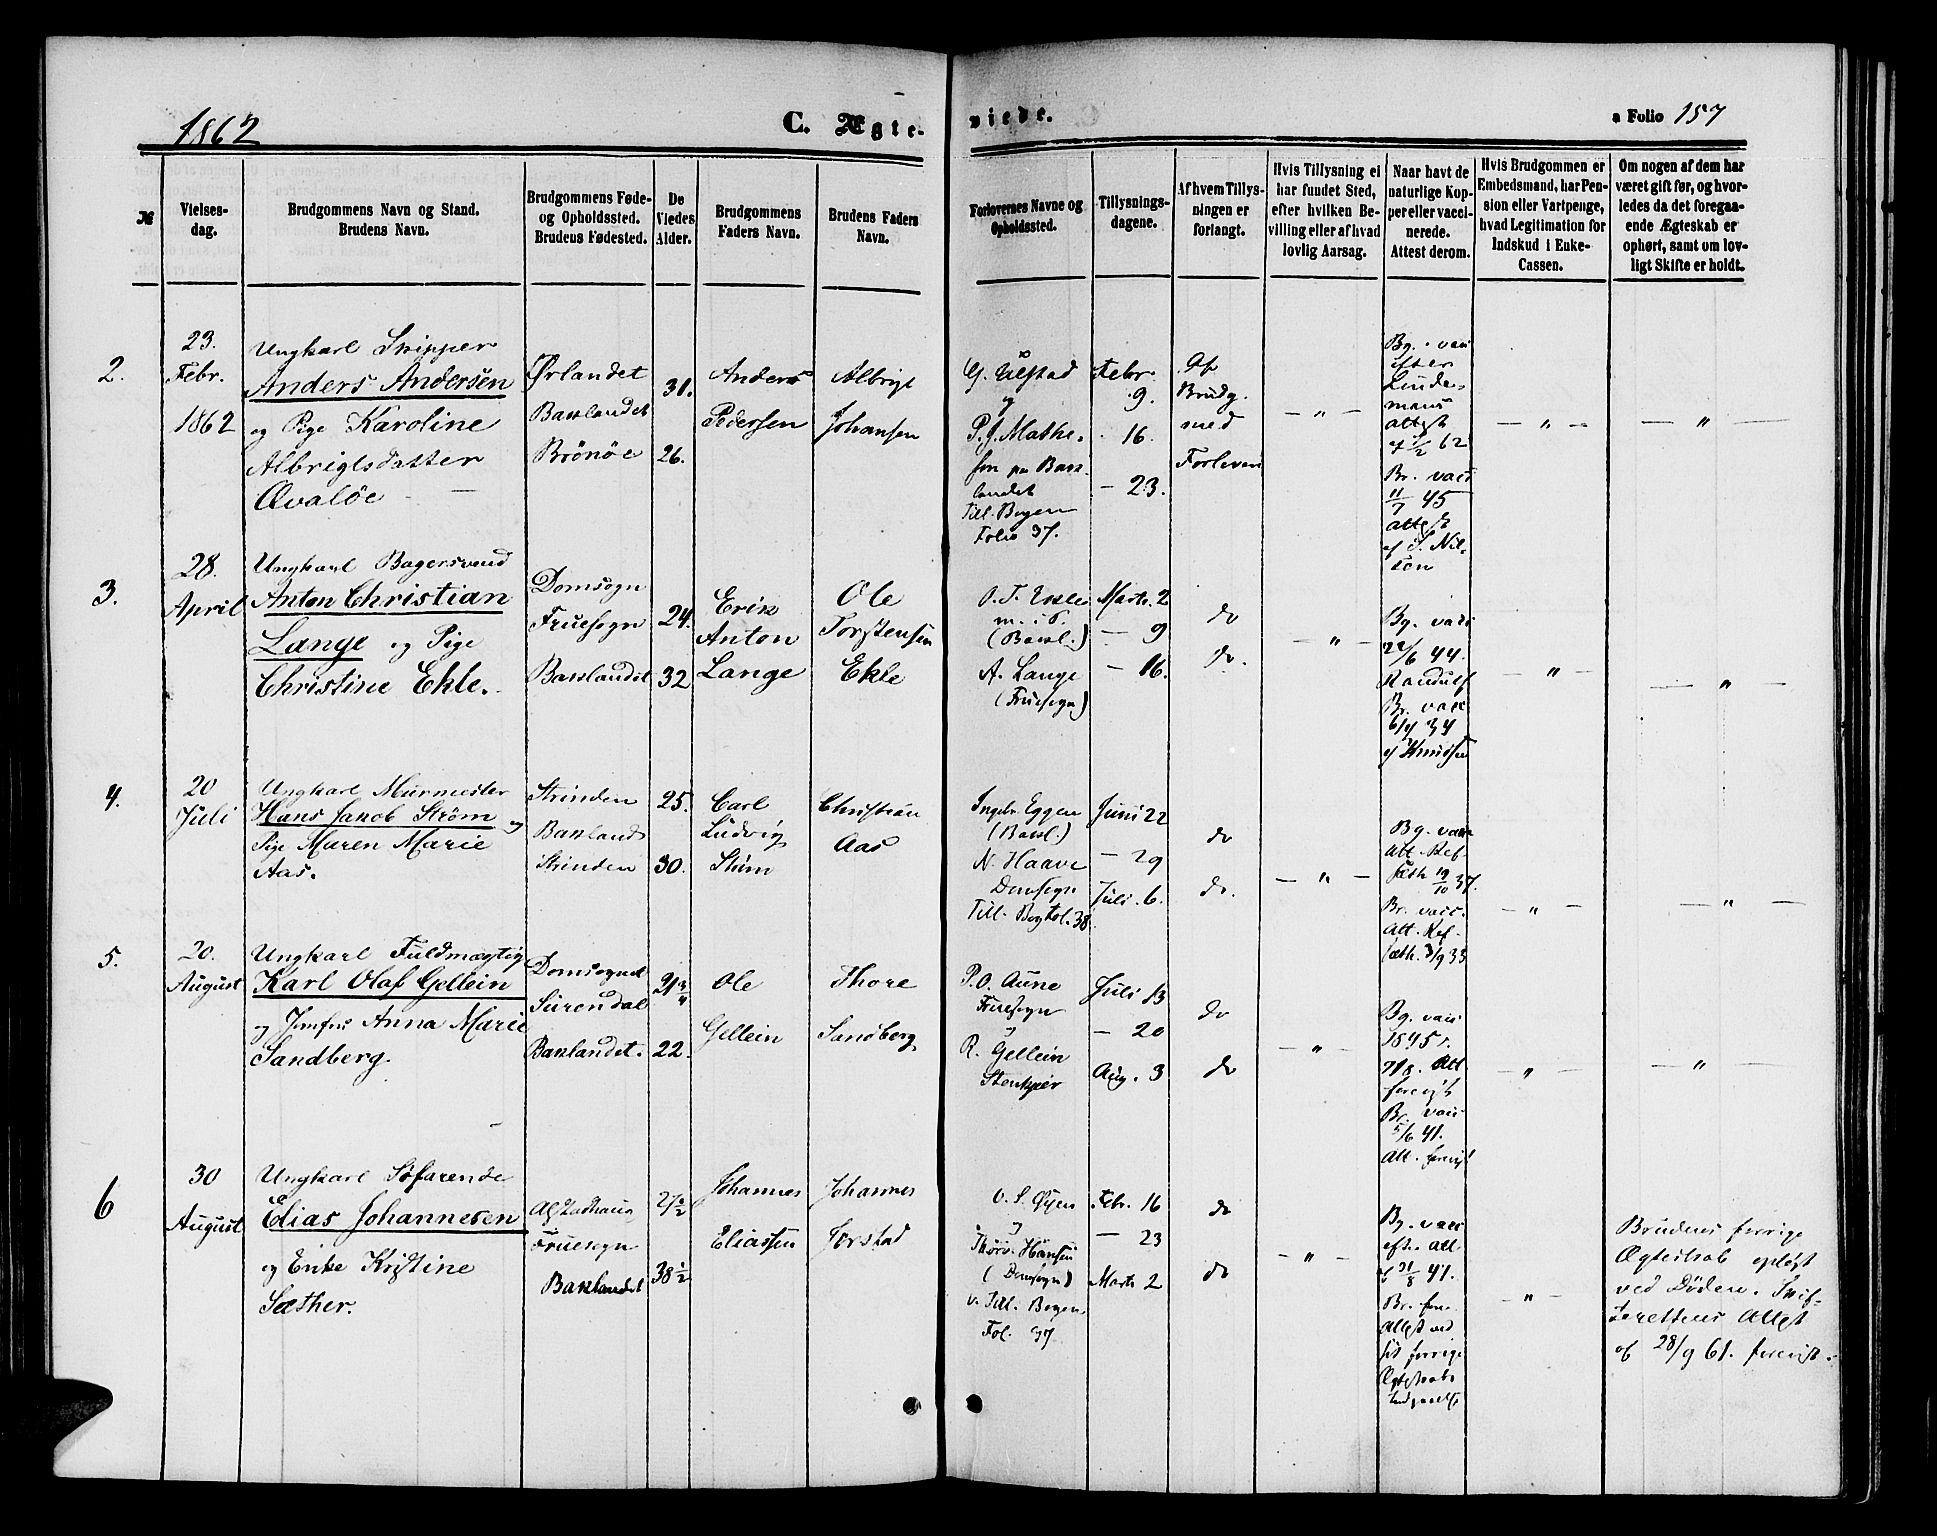 1862
C. Ægte-
viede.
a Folio 157
№
Vielses-
dag.
Brudgommens Navn og Stand.
Brudens Navn.
Brudgommens Føde-
og Opholdssted.
Brudens Fødested.
De
Viedes
Alder.
Brudgommens
Faders Navn.
Brudens Faders
Navn.
Forlovernes Navne og
Opholdssted.
Tillysnings-
dagene.
Af hvem Tillys-
ningen er
forlangt.
Hvis Tillysning ei
har fundet Sted,
efter hvilken Be-
villing eller af hvad
lovlig Aarsag.
Naar havt de
naturlige Kop-
per eller vacci-
nerede.
Attest derom.
Hvis Brudgommen er
Embedsmand, har Pen-
sion eller Vartpenge,
hvad Legitimation for
Indskud i Enke-
Cassen.
Om nogen af dem har
været gift før, og hvor-
ledes da det foregaa-
ende Ægteskab er
ophørt, samt om lov-
ligt Skifte er holdt.
2.
23.
Febr.
1862
Ungkarl Skipper
Anders Andersen
og Pige Karoline
Albrigtsdatter
Qvaløe
Ørlandet
Baklandet
Brönöe
31.
26.
Anders
Pedersen
Albrigt
Johansen
og
P. J. Mathe-
sen paa Bak-
landet
Till. Bogen
Folio 37.
Febr.
9.
16.
— 23.
Af
Brudg.
med
Forloveren
— " —
Bg. vac.
efter
Linde-
mans
Attest
af 1/2 62
Br. vacc
11/7 45
Attest
af S. Nil-
sen
— " —
— " —
3.
28.
April
Ungkarl Bagersvend
Anton Christian
Lange og Pige
Christine Ekle.
Domsogn
Fruesogn
Baklandet
24.
32
Erik
Anton
Lange
Ole
Torstensen
Ekle
O. T. Ekle
(Bakl.)
A. Lange
(Fruesogn)
Marts 2
— 9
— 16.
do
do.
— " —
Bg. vacc
44.
Br. vacc
af Knudsen
— " —
— " —
4.
20
Juli
Ungkarl Murmester
Hans Jacob Strøm og
Pige Maren Marie
Aas.
Strinden
Bakland
Strinden
25.
30.
Carl
Ludvig
Strøm
Christian
Aas
Ingebr. Eggen
(Bakl.)
N. Haave
Domsogn
Till. Bog fol. 38
Juni 22
— 29
Juli 6.
do
do.
— " —
Bg. vacc
Att. Ref-
sæth 19/10 37.
Br. vacc.
Att. Ref-
sæth. 3/9 33
— " —
— " —
5.
20.
August
Ungkarl Fuldmægtig
Karl Olaf Gellein
og Jomfru Anna Marie
Sandberg.
Domsognet
Surendal
Baklandet.
22.
Ole
Gellein
Thore
Sandberg
P. O. Aune
Fruesogn
og
R. Gellein
Stenkjær
Juli 13
— 20
Aug. 3
do
do
— " —
Bg. vacc
1845
Att.
forevist
Br. vacc
5/6 41.
Att. forevist
— " —
— " —
6
30
August
Ungkarl Søfarende
Elias Johannesen
og Enke Kristine
Sæther.
Fruesogn
Baklandet
27 1/2
38 1/2
Johannes
Eliassen
Johannes
Jørstad
O. S. Øyen
og
Thorv. Hansen
(Domsogn)
v. Till. Bogen
Fol. 37
Febr. 16
— 23
Marts 2
do
do
— " —
Bg. vacc
eft. Att
af 31/8 41.
Br. fore-
Attest ved
sit forrige
Ægteskabs
Indgaaelse
— " —
Brudens forrige
Ægteskab opløst
ved Døden. Skif-
terettens Attest
af 28/9 61. forevist.